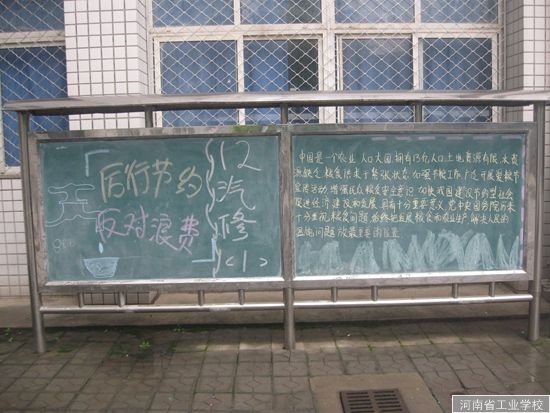 厉行节约
反对浪费
12
汽
修
<1>
中国是一个农业 人口大国 拥有13亿人口 土地资源有限 水资
源缺乏 粮食供求十紧张状态 加强节粮工作 广泛开展爱粮节
粮活动 增强民众粮食安全意识 加快我国建设节约型社会
促进经济建设和发展 具有十分重要意义 党中央国务院历来
十分重视粮食问题 始终把发展粮食和农业生产 解决人民的
吃饭问题放最重要的位置
河南省工业学校